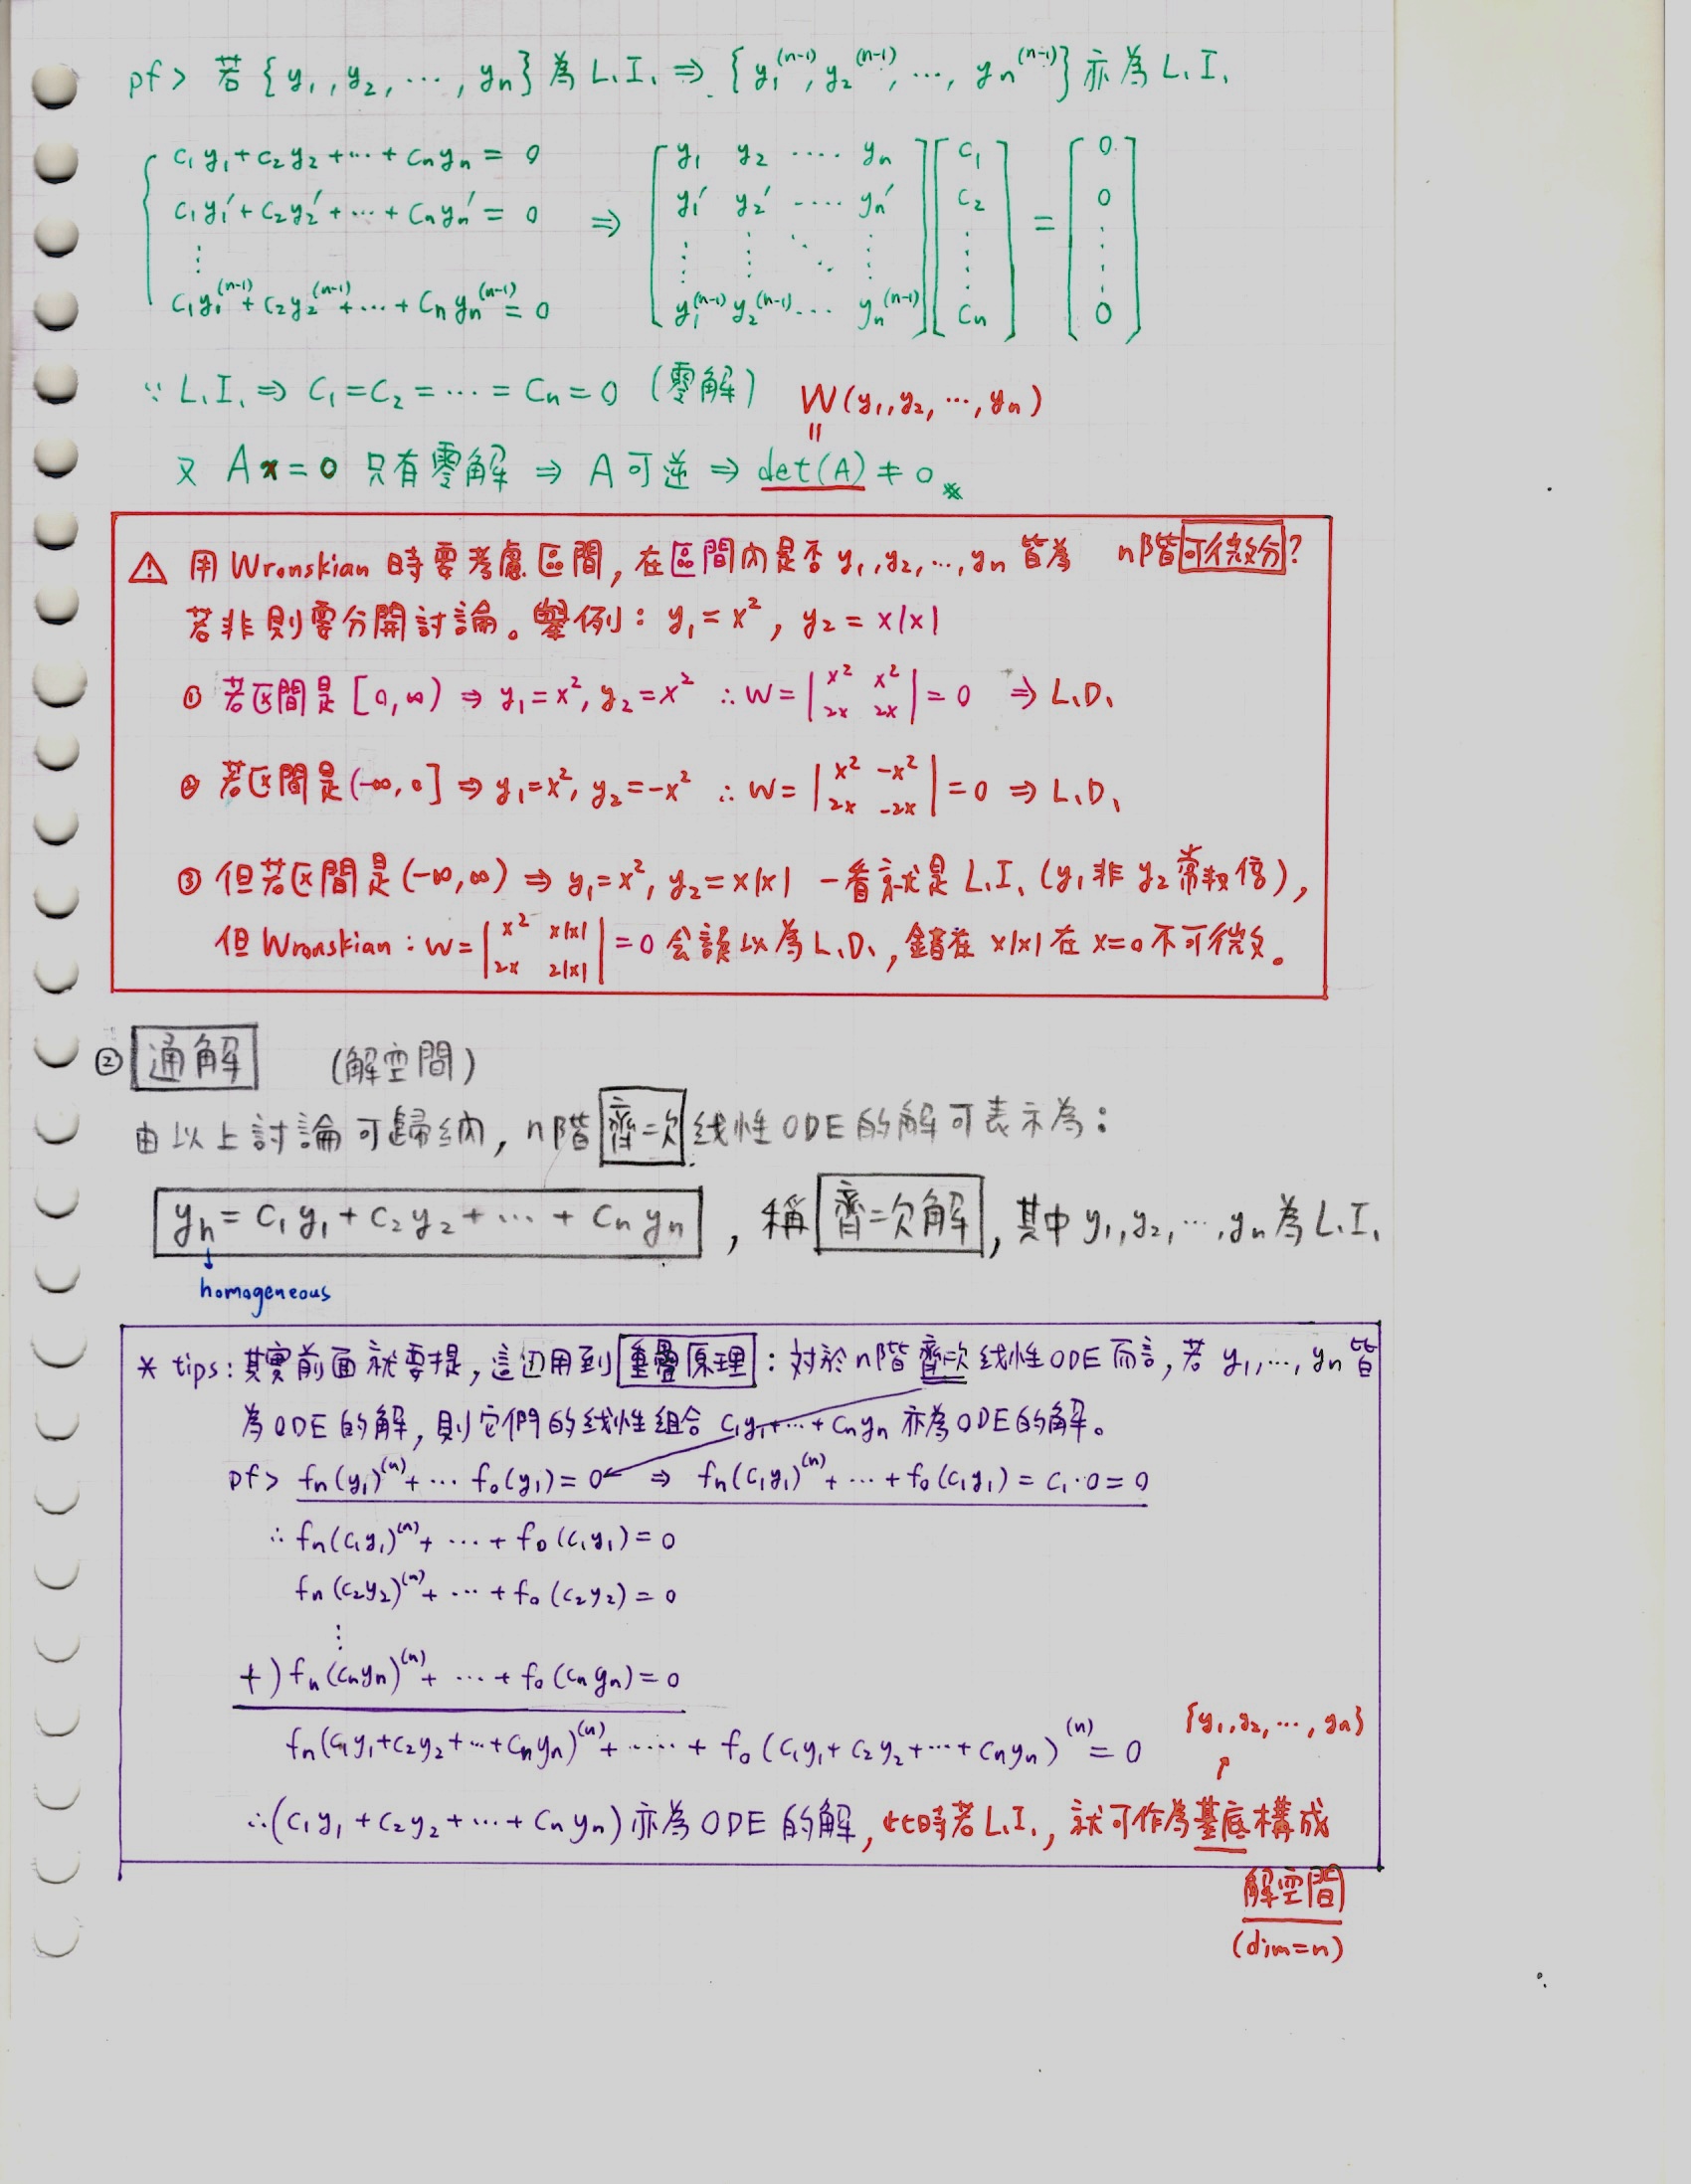 pf> 若 {y₁, y₂, ⋯, yₙ} 為 L.I. ⇒ {y₁⁽ⁿ⁻¹⁾, y₂⁽ⁿ⁻¹⁾, ⋯, yₙ⁽ⁿ⁻¹⁾} 亦為 L.I.
c₁y₁ + c₂y₂ + ⋯ + cₙyₙ = 0
c₁y₁′ + c₂y₂′ + ⋯ + cₙyₙ′ = 0
⋮
c₁y₁⁽ⁿ⁻¹⁾ + c₂y₂⁽ⁿ⁻¹⁾ + ⋯ + cₙyₙ⁽ⁿ⁻¹⁾ = 0
⇒ [y₁ y₂ ⋯ yₙ; y₁′ y₂′ ⋯ yₙ′; ⋮ ⋮ ⋱ ⋮; y₁⁽ⁿ⁻¹⁾ y₂⁽ⁿ⁻¹⁾ ⋯ yₙ⁽ⁿ⁻¹⁾] [c₁; c₂; ⋮; cₙ] = [0; 0; ⋮; 0]
∵ L.I. ⇒ C₁ = C₂ = ⋯ = Cₙ = 0 (零解)
W(y₁, y₂, ⋯, yₙ)
=
又 Ax = 0 只有零解 ⇒ A 可逆 ⇒ det(A) ≠ 0 ※
⚠ 用 Wronskian 時要考慮區間, 在區間內是否 y₁, y₂, ⋯, yₙ 皆為 n階可微分?
若非則要分開討論。舉例: y₁ = x², y₂ = x|x|
① 若区間是 [0, ∞) ⇒ y₁ = x², y₂ = x² ∴ W = |x² x²; 2x 2x| = 0 ⇒ L.D.
② 若区間是 (-∞, 0] ⇒ y₁ = x², y₂ = -x² ∴ W = |x² -x²; 2x -2x| = 0 ⇒ L.D.
③ 但若区間是 (-∞, ∞) ⇒ y₁ = x², y₂ = x|x| 一看就是 L.I. (y₁ 非 y₂ 常數倍),
但 Wronskian : W = |x² x|x|; 2x 2|x|| = 0 会誤以為 L.D., 錯在 x|x| 在 x=0 不可微。
② 通解 (解空間)
由以上討論可歸納, n階 齊次 线性 ODE 的解可表示為:
yₕ = c₁y₁ + c₂y₂ + ⋯ + cₙyₙ , 稱 齊次解, 其中 y₁, y₂, ⋯, yₙ 為 L.I.
↓
homogeneous
* tips: 其實前面就要提, 這边用到 重疊原理 : 対於 n階 齊次 线性 ODE 而言, 若 y₁, ⋯, yₙ 皆
為 ODE 的解, 則它們的线性組合 c₁y₁ + ⋯ + cₙyₙ 亦為 ODE 的解。
pf> fₙ(y₁)⁽ⁿ⁾ + ⋯ f₀(y₁) = 0 ⇒ fₙ(c₁y₁)⁽ⁿ⁾ + ⋯ + f₀(c₁y₁) = c₁·0 = 0
∴ fₙ(c₁y₁)⁽ⁿ⁾ + ⋯ + f₀(c₁y₁) = 0
fₙ(c₂y₂)⁽ⁿ⁾ + ⋯ + f₀(c₂y₂) = 0
⋮
+) fₙ(cₙyₙ)⁽ⁿ⁾ + ⋯ + f₀(cₙyₙ) = 0
fₙ(c₁y₁ + c₂y₂ + ⋯ + cₙyₙ)⁽ⁿ⁾ + ⋯⋯ + f₀(c₁y₁ + c₂y₂ + ⋯ + cₙyₙ)⁽ⁿ⁾ = 0
{y₁, y₂, ⋯, yₙ}
∴ (c₁y₁ + c₂y₂ + ⋯ + cₙyₙ) 亦為 ODE 的解, 此時若 L.I., 就可作為基底構成
解空間
(dim=n)